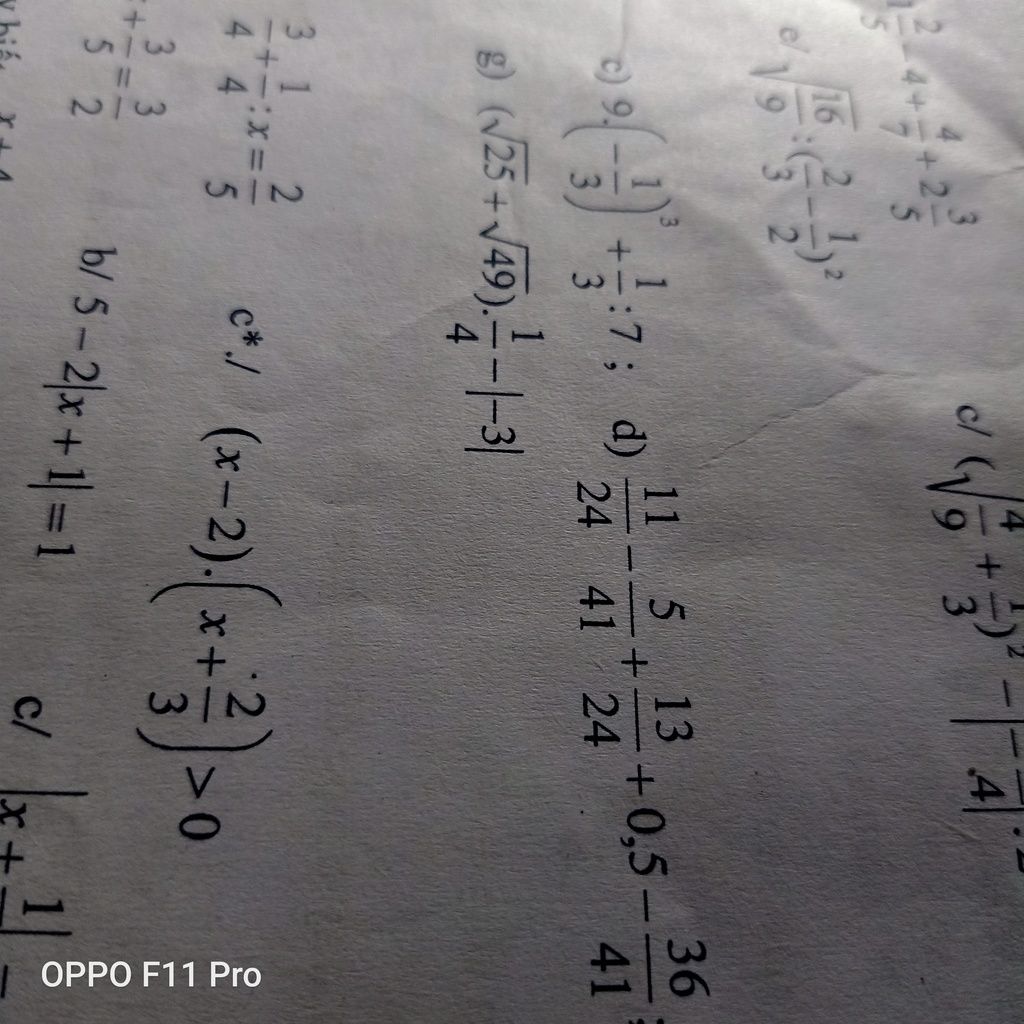 2/5 - 4 + 4/7 + 2 3/5 c/ (√(4/9) + 1/3)² - |- /4| :
e/ √(16/9) : (2/3 - 1/2)²
c) 9.(-1/3)³ + 1/3 : 7 ; d) 11/24 - 5/41 + 13/24 + 0,5 - 36/41 ;
g) (√25 + √49).1/4 - |-3|
3/4 + 1/4 : x = 2/5 c*./ (x - 2).(x + 2/3) > 0
+ 3/5 = 3/2 b/ 5 - 2|x + 1| = 1 c/ |x + 1/ | -
OPPO F11 Pro